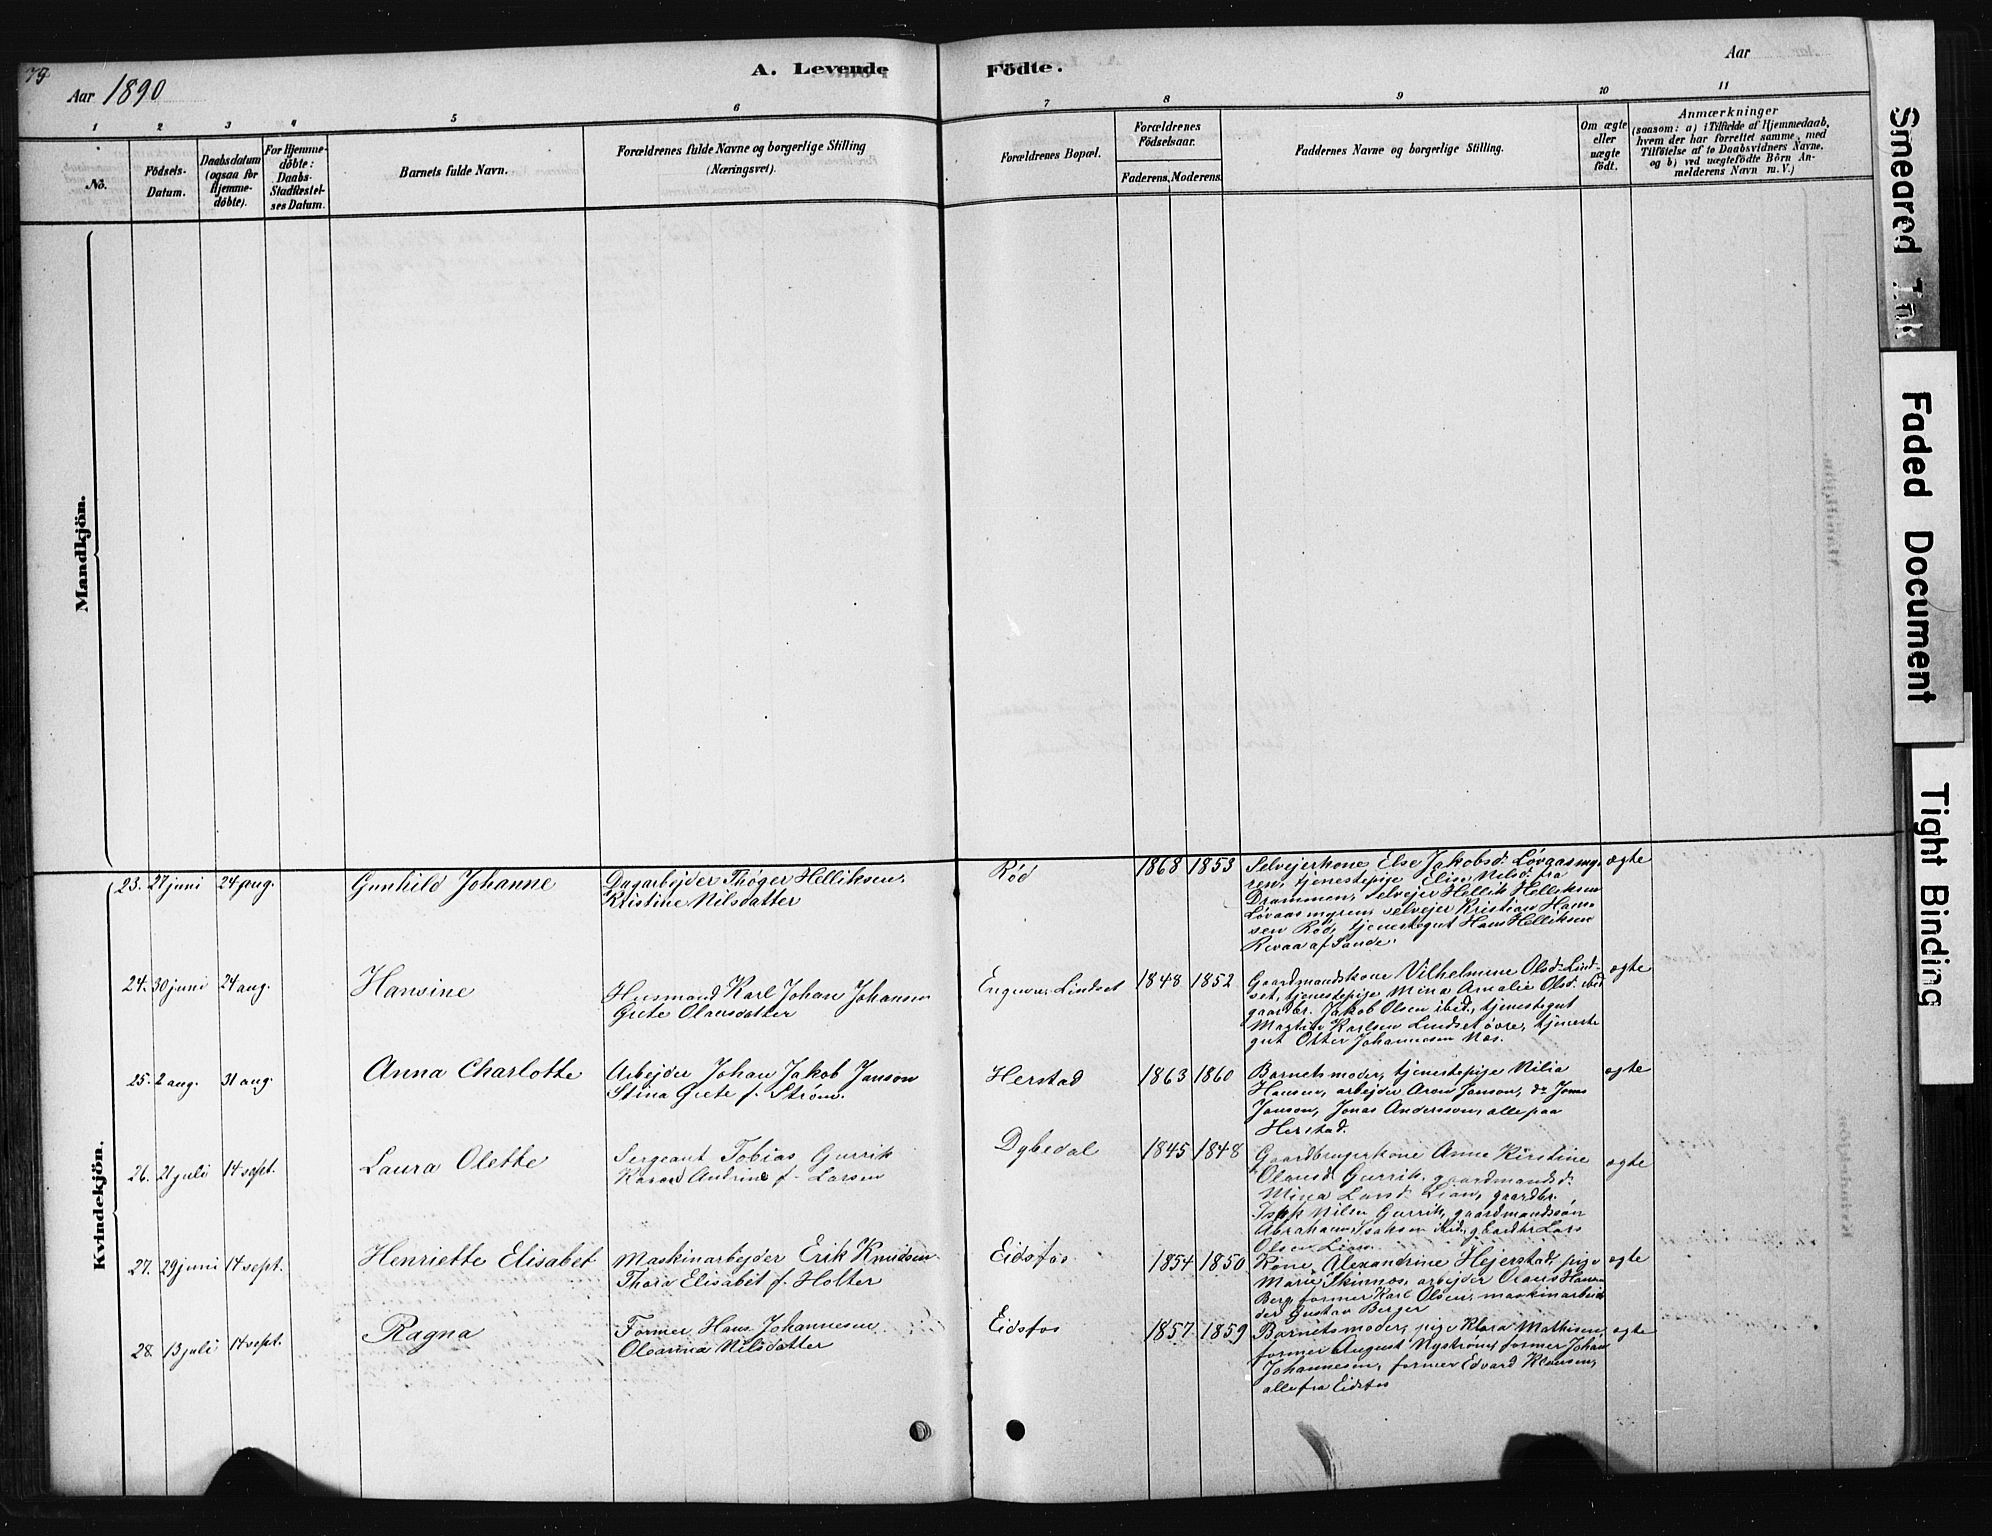 79
Aar 1890
A. Levende Födte.
Aar
1 2 3 4 5 6 7 8 9 10 11
No.
Födsels-Datum.
Daabsdatum (ogsaa for Hjemme-döbte).
For Hjemme-döbte: Daabs-Stadfæstel-ses Datum.
Barnets fulde Navn.
Forældrenes fulde Navne og borgerlige Stilling
(Næringsvei).
Forældrenes Bopæl.
Forældrenes Födselsaar.
Faderens. Moderens.
Faddernes Navne og borgerlige Stilling.
Om ægte eller uægte födt.
Anmærkninger
(saasom: a) i Tilfælde af Hjemmedaab,
hvem der har forrettet samme, med
Tilföielse af to Daabsvidners Navne,
og b) ved uægtefödte Börn An-
melderens Navn m. V.)
Mandkjön.
Kvindekjön.
23. 27 juni 24 aug. Gunhild Johanne
Dagarbejder Thøger Helliksen.
Kristine Nilsdatter
Rød 1868 1853
Selvejerkone Else Jakobsd. Løvaasmy-
ren, tjenestepige Elise Nilsd. fra
Drammen, selvejer Hellik Helliksen
Løvaasmyren, selvejer Kristian Han-
sen Rød, tjenestegut Hans Helliksen
Revaa af Sande.
ægte
24. 30 juni 24 aug. Hansine
Husmand Karl Johan Johansen
Grete Olausdatter
Lindset 1848 1852
Gaardmandskone Vilhelmine Olsd. Lind-
set, tjenestepige Mina Amalie Olsd. ibid
gaardbr. Jakob Olsen ibid., tjenestegut
Martin Karlsen Lindset øvre, tjeneste
gut Otter Johannesen Næs.
ægte
25. 2 aug. 31 aug. Anna Charlotte
Arbejder Johan Jakob Janson
Stina Grete f. Strøm.
Herstad 1863 1860
Barnets moder, tjenestepige Nilia
Hansen, arbejder Aron Janson, do Jonas
Janson, Jonas Andersson, alle paa
Herstad.
ægte
26. 21 juli 14 sept. Laura Olette
Sergeant Tobias Gurrik
Karen Andrine f. Larsen
Dybedal 1845 1848
Gaardbrugerkone Anne Kirstine
Olausd. Gurrik, gaardmandsd.
Mina Larsd. Lian, gaardbr.
Isak Nilsen Gurrik, gaardmandssøn
Abraham Isaksen ibid, gaardbr Lars
Olsen Lian
ægte
27. 29 juni 14 sept. Henriette Elisabet
Maskinarbejder Erik Knudsen
Thora Elisabet f. Holter
Eidsfos 1854 1850
Kone Alexandrine Hejerstad, pige
Marie Skinnes, arbejder Olaus Hansen
Berg, former Karl Olsen, maskinarbei-
der Gustav Berger
ægte
28. 13 juli 14 sept. Ragna
Former Hans Johannesen
Olearina Nilsdatter
Eidsfos 1857 1859
Barnets moder, pige Klara Mathisen,
former August Nystrøm, former Johan
Johannesen, former Edvard Klausen,
alle fra Eidsfos
ægte
Smeared Ink
Faded Document
Tight Binding